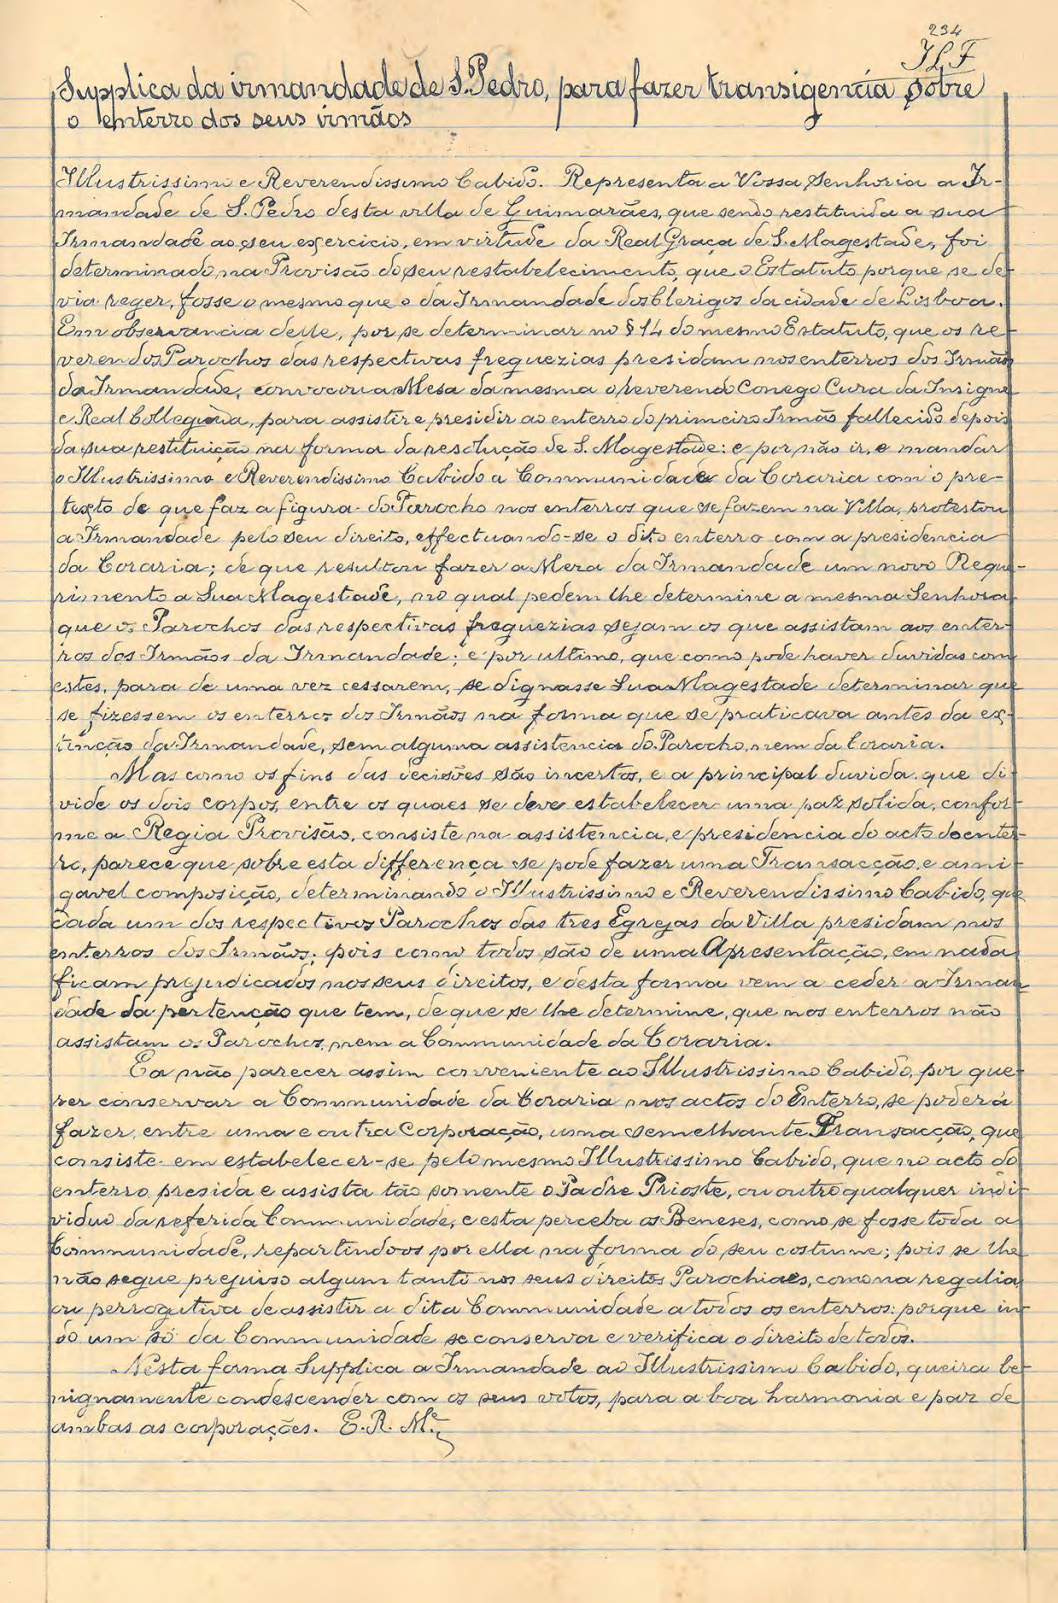 234
Supplica da irmandade de S. Pedro, para fazer transigencia sobre
o enterro dos seus irmãos
Illustrissimo e Reverendissimo Cabido. Representa a Vossa Senhoria a Ir-
mandade de S. Pedro desta villa de Guimarães, que sendo restituida a sua
Irmandade ao seu exercicio, em virtude da Real Graça de S. Magestade, foi
determinado, na Provisão do seu restabelecimento, que o Estatuto porque se de-
via reger, fosse o mesmo que o da Irmandade dos Clerigos da cidade de Lisboa.
Em observancia delle, por se determinar no § 14 do mesmo Estatuto, que os re-
verendos Parochos das respectivas freguezias presidam nos enterros dos Irmãos
da Irmandade, convocou a Mesa da mesma o reverendo Conego Cura da Insigne
e Real Collegiada, para assistir e presidir ao enterro do primeiro Irmão fallecido depois
da sua restituição na forma da resolução de S. Magestade: e por não ir, e mandar
o Illustrissimo e Reverendissimo Cabido a Communidade da Coraria com o pre-
texto de que faz a figura do Parocho nos enterros que se fazem na Villa, protestou
a Irmandade pelo seu direito, effectuando-se o dito enterro com a presidencia
da Coraria; de que resultou fazer a Meza da Irmandade um novo Reque-
rimento a Sua Magestade, no qual pedem lhe determine a mesma Senhora
que os Parochos das respectivas freguezias sejam os que assistam aos enter-
ros dos Irmãos da Irmandade; e por ultimo, que como pode haver duvidas com
estes, para de uma vez cessarem, se dignasse Sua Magestade determinar que
se fizessem os enterros dos Irmãos na forma que se praticava antes da ex-
tincção da Irmandade, sem alguma assistencia do Parocho, nem da Coraria.
Mas como os fins das decisões são incertos, e a principal duvida, que di-
vide os dois corpos, entre os quaes se deve estabelecer uma paz solida, confor-
me a Regia Provisão, consiste na assistencia, e presidencia do acto do enter-
ro, parece que sobre esta differença se pode fazer uma Transacção, e ami-
gavel composição, determinando o Illustrissimo e Reverendissimo Cabido, que
cada um dos respectivos Parochos das tres Egrejas da Villa presidam nos
enterros dos Irmãos; pois como todos são de uma Apresentação, em nada
ficam prejudicados nos seus direitos, e desta forma vem a ceder a Irman-
dade da pertenção que tem, de que se lhe determine, que nos enterros não
assistam os Parochos, nem a Communidade da Coraria.
E a não parecer assim conveniente ao Illustrissimo Cabido, por que-
rer conservar a Communidade da Coraria nos actos do Enterro, se poderá
fazer, entre uma e outra Corporação, uma semelhante Transacção, que
consiste em estabelecer-se pelo mesmo Illustrissimo Cabido, que no acto do
enterro presida e assista tão somente o Padre Prioste, ou outro qualquer indi-
viduo da referida Communidade, e esta perceba os Beneses, como se fosse toda a
Communidade, repartindo-os por ella na forma do seu costume; pois se lhe
não segue prejuiso algum tanto nos seus direitos Parochiaes, como na regalia
ou perrogativa de assistir a dita Communidade a todos os enterros: porque in-
do um só da Communidade se conserva e verifica o direito de todos.
Nesta forma Supplica a Irmandade ao Illustrissimo Cabido, queira be-
nignamente condescender com os seus votos, para a boa harmonia e paz de
ambas as corporações. E. R. M.ce